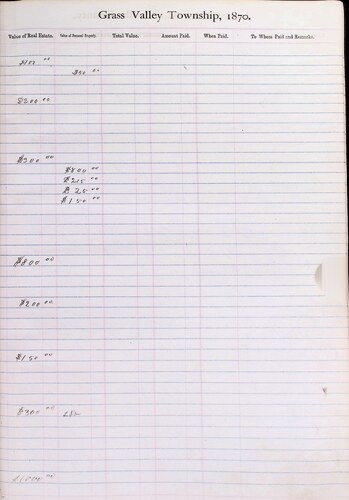 Grass Valley Township, 1870.
Value of Real Estate. Value of Personal Property Total Value. Amount Paid. When Paid. To Whom Paid and Remarks.
$100 00
$50 00
$200 00
$200 00
$500 00
$ 25 00
$150 00
$800 00
$200 00
$150 00
$300 00
$1000 00